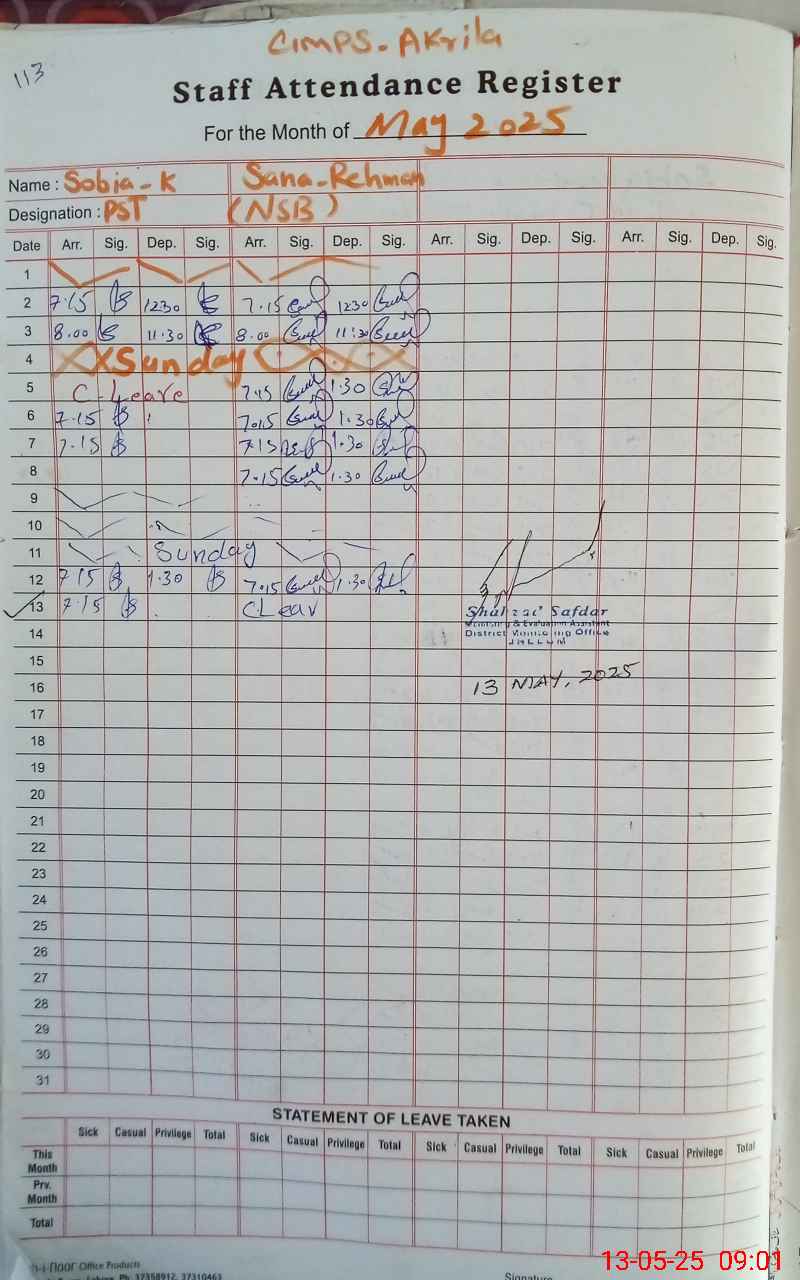 113
GMPS. Akrila
Staff Attendance Register
For the Month of May 2025
Name : Sobia-K Sana-Rehman
Designation : PST (NSB)
Date Arr. Sig. Dep. Sig. Arr. Sig. Dep. Sig. Arr. Sig. Dep. Sig. Arr. Sig. Dep. Sig.
1
2 7.15 1230 7.15 1230
3 8.00 11.30 8.00 11:30
4 Sunday
5 C-Leave 7.15 1.30
6 7.15 7.15 1.30
7 7.15 7.15 1.30
8 7.15 1.30
9
10
11 Sunday
12 7.15 1.30 7.15 1.30
13 7.15 CLeav
Safdar
Monitoring & Evaluation Assistant
District Monitoring Office
JHELUM
14
15
16 13 MAY, 2025
17
18
19
20
21
22
23
24
25
26
27
28
29
30
31
STATEMENT OF LEAVE TAKEN
Sick Casual Privilege Total Sick Casual Privilege Total Sick Casual Privilege Total Sick Casual Privilege Total
This Month
Prv. Month
Total
Office Products
Ph: 37358912, 37310463
Signature
13-05-25 09:01